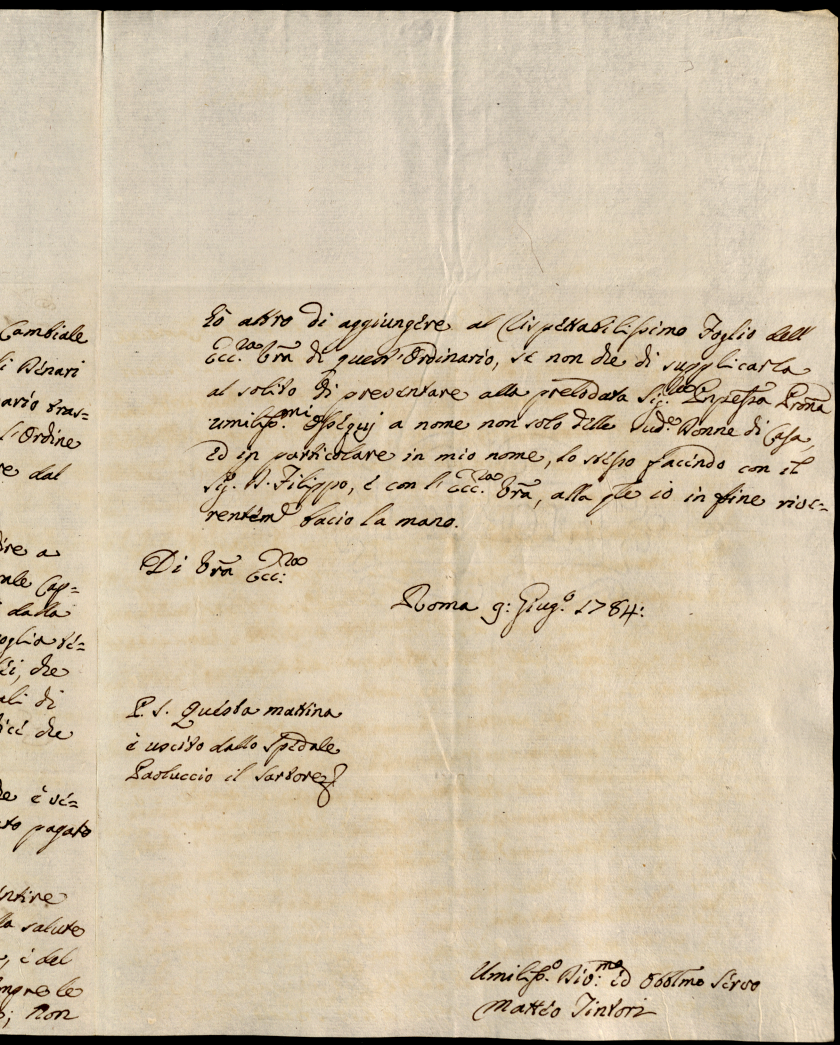 Cambiale
li Denari
ario tras=
l'Ordine
re dal
ire a
ale Cap=
dalla
oglia ri=
lici, che
ali di
dici che
he è ri=
to pagato
entire
la salute
, è del
empre le
; Non
Eò altro di aggiungere al Rispettabilissimo Foglio dell'
Ecc.za Vrā di quest'Ordinario, se non che di supplicarla
al solito di presentare alla prelodata Sig.ra Prōna
umiliss.mi Ossequj a nome non solo delle sud.e Donne di Casa,
ed in particolare in mio nome, lo stesso facendo con il
Sig. D. Filippo, è con l'Ecc.za Vrā, alla qle io in fine rive=
rentem.e bacio la mano.
Di Vrā Ecc:za
Roma 9: Giug.o 1784:
P. S. Questa mattina
è uscito dallo Spedale
Paoluccio il Sartore
Umiliss.o Div:mo ed Obblmo Servo
Mattèo Tintori